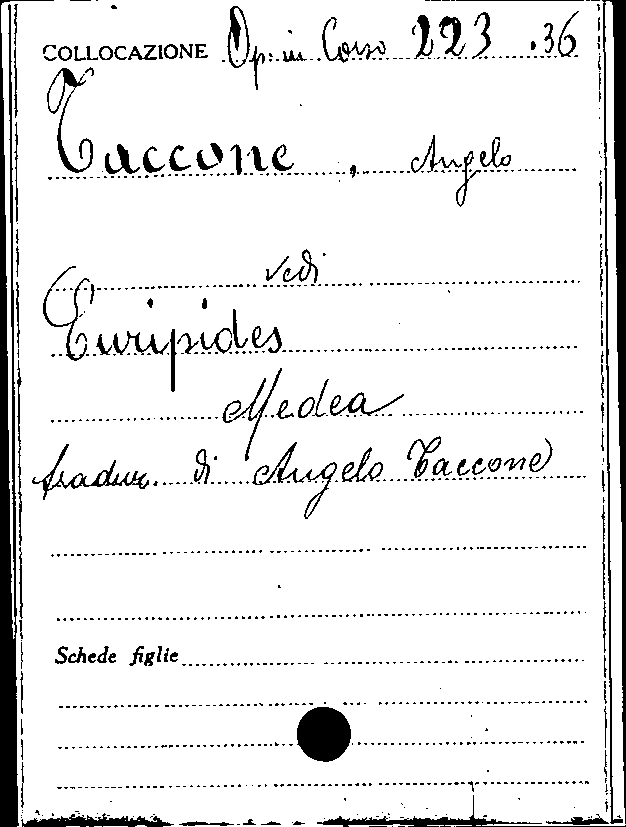 COLLOCAZIONE Op. in Corso 223 .36
Taccone, Angelo
vedi
Euripides
Medea
tradur. di Angelo Taccone
Schede figlie